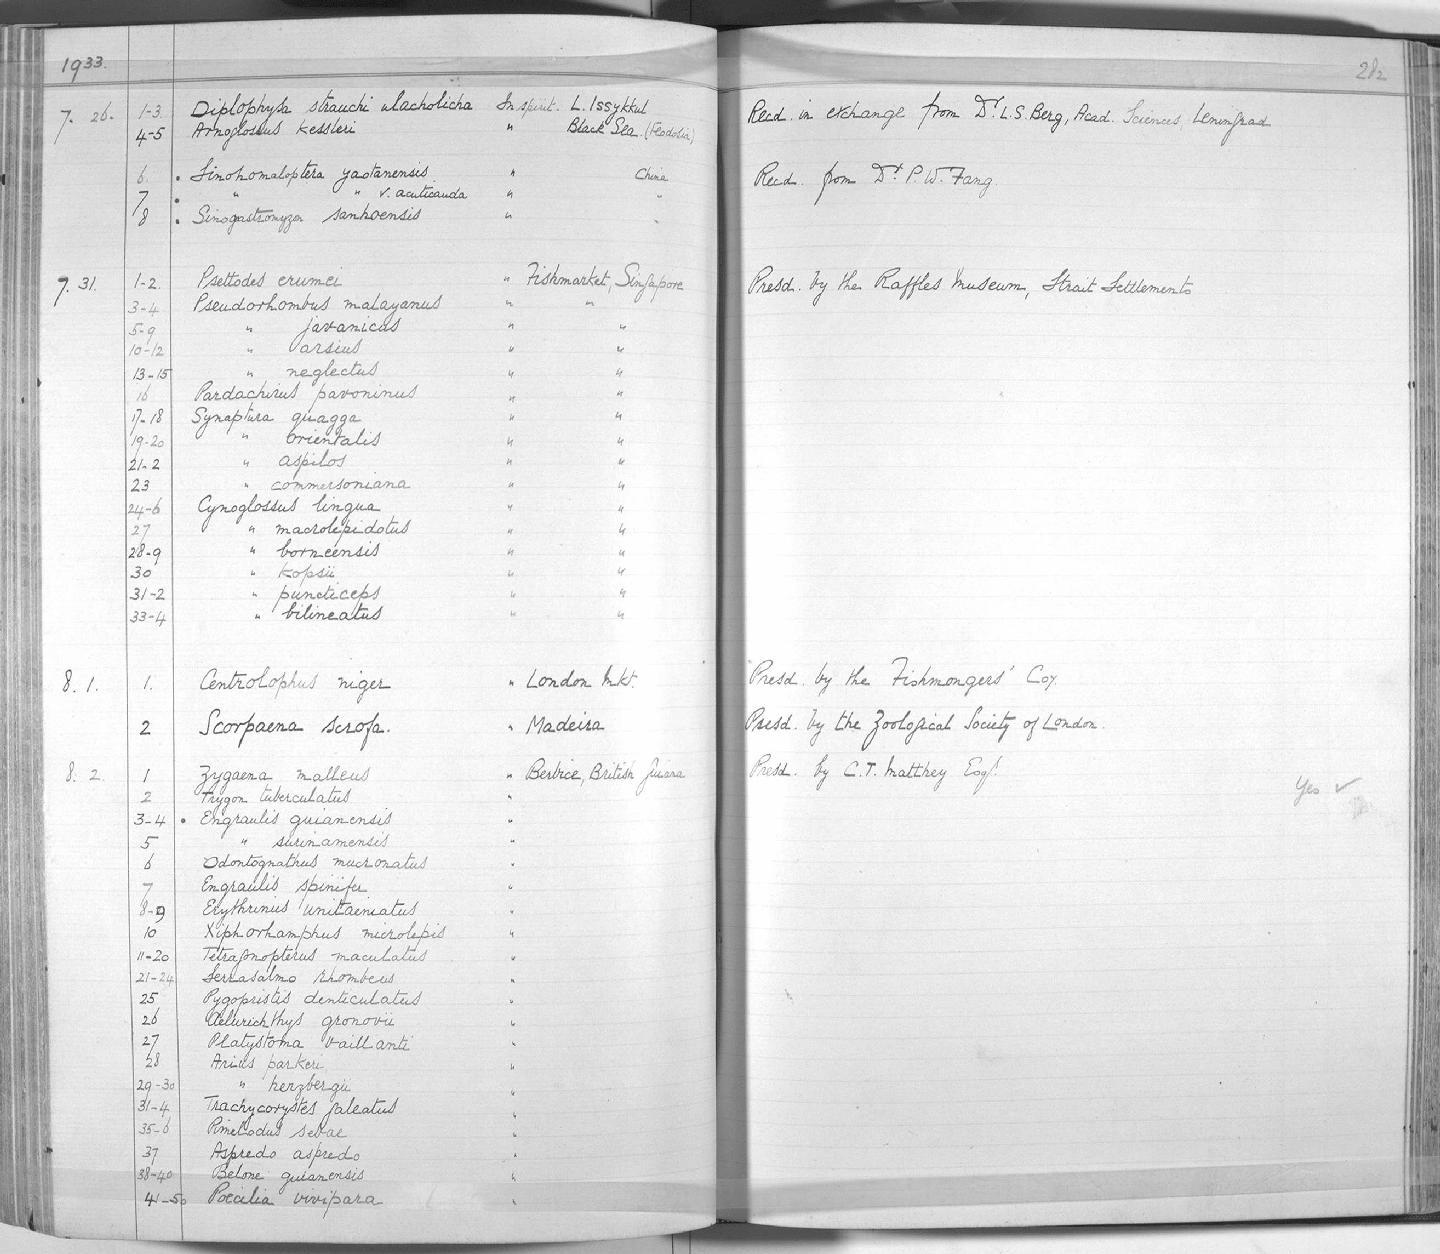 1933. 282
7. 26. 1-3 Diplophysa strauchi ulacholicha In spirit. L. Issykkul Recd. in exchange from Dr. L.S. Berg, Acad. Sciences, Leningrad
4-5 Arnoglossus kessleri " Black Sea (Feodosia)
6. • Sinohomaloptera yaotanensis " China Recd. from Dr. P.W. Fang.
7 • " " v. acuticauda " "
8 • Sinogastromyzon sanhoensis " "
7. 31. 1-2. Psettodes erumei " Fishmarket, Singapore Presd. by the Raffles Museum, Strait Settlements
3-4 Pseudorhombus malayanus " "
5-9 " javanicus " "
10-12 " arsius " "
13-15 " neglectus " "
16 Pardachirus pavoninus " "
17-18 Synaptura quagga " "
19-20 " orientalis " "
21-2 " aspilos " "
23 " commersoniana " "
24-6 Cynoglossus lingua " "
27 " macrolepidotus " "
28-9 " borneensis " "
30 " kopsii " "
31-2 " puncticeps " "
33-4 " bilineatus " "
8. 1. 1. Centrolophus niger " London Mkt. Presd. by the Fishmongers' Coy.
2 Scorpaena scrofa. " Madeira Presd. by the Zoological Society of London.
8. 2. 1 Zygaena malleus " Berbice, British Guiana Presd. by C.T. Matthey Esq.
2 Trygon tuberculatus " Yes ✓
3-4 • Engraulis guianensis "
5 " surinamensis "
6 Odontognathus mucronatus "
7 Engraulis spinifer "
8-9 Erythrinus unitaeniatus "
10 Xiphorhamphus microlepis "
11-20 Tetragonopterus maculatus "
21-24 Serrasalmo rhombeus "
25 Pygopristis denticulatus "
26 Aelurichthys gronovii "
27 Platystoma vaillanti "
28 Arius parkeri "
29-30 " herzbergii "
31-4 Trachycorystes galeatus "
35-6 Pimelodus sebae "
37 Aspredo aspredo "
38-40 Belone guianensis "
41-50 Poecilia vivipara "